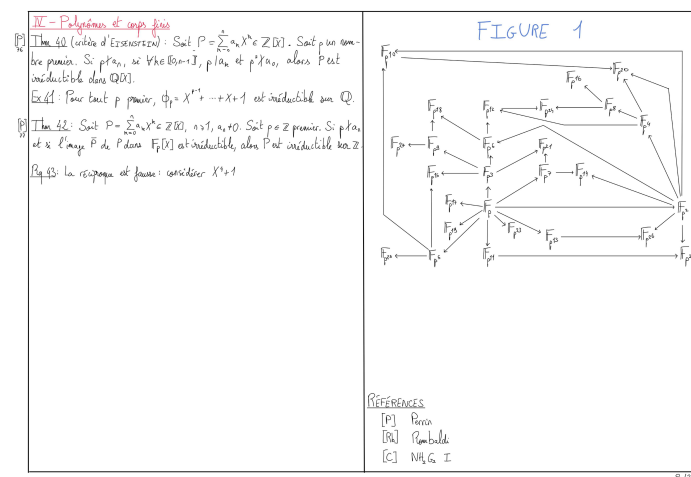 IV - Polynômes et corps finis
[P] 76 Thm 40 (critère d'EISENSTEIN) : Soit P = ∑_{k=0}^{n} a_k X^k ∈ ℤ[X]. Soit p un nom-
bre premier. Si p∤a_n, si ∀k∈⟦0,n-1⟧, p|a_k et p²∤a_0, alors P est
irréductible dans ℚ[X].
Ex 41 : Pour tout p premier, ϕ_p = X^{p-1} + ... + X + 1 est irréductible sur ℚ.
[P] 77 Thm 42 : Soit P = ∑_{k=0}^{n} a_k X^k ∈ ℤ[X], n>1, a_n≠0. Soit p ∈ ℤ premier. Si p∤a_n
et si l'image P̄ de P dans 𝔽_p[X] est irréductible, alors P est irréductible sur ℤ.
Rq 43 : La réciproque est fausse : considérer X⁴+1
FIGURE 1
𝔽_{p^{10}}
𝔽_{p^{20}}
𝔽_{p^{16}}
𝔽_{p^{18}} 𝔽_{p^{12}} 𝔽_{p^{24}} 𝔽_{p^8}
𝔽_{p^4}
𝔽_{p^{27}} 𝔽_{p^9} 𝔽_{p^6} 𝔽_{p^{21}}
𝔽_{p^{15}} 𝔽_{p^3} 𝔽_{p^7} 𝔽_{p^{14}}
𝔽_{p^{17}} 𝔽_p 𝔽_{p^2}
𝔽_{p^{19}} 𝔽_{p^{23}} 𝔽_{p^{13}} 𝔽_{p^{26}}
𝔽_{p^5} 𝔽_{p^{11}}
RÉFÉRENCES
[P] Perrin
[Rb] Rombaldi
[C] NH₂G₂ I